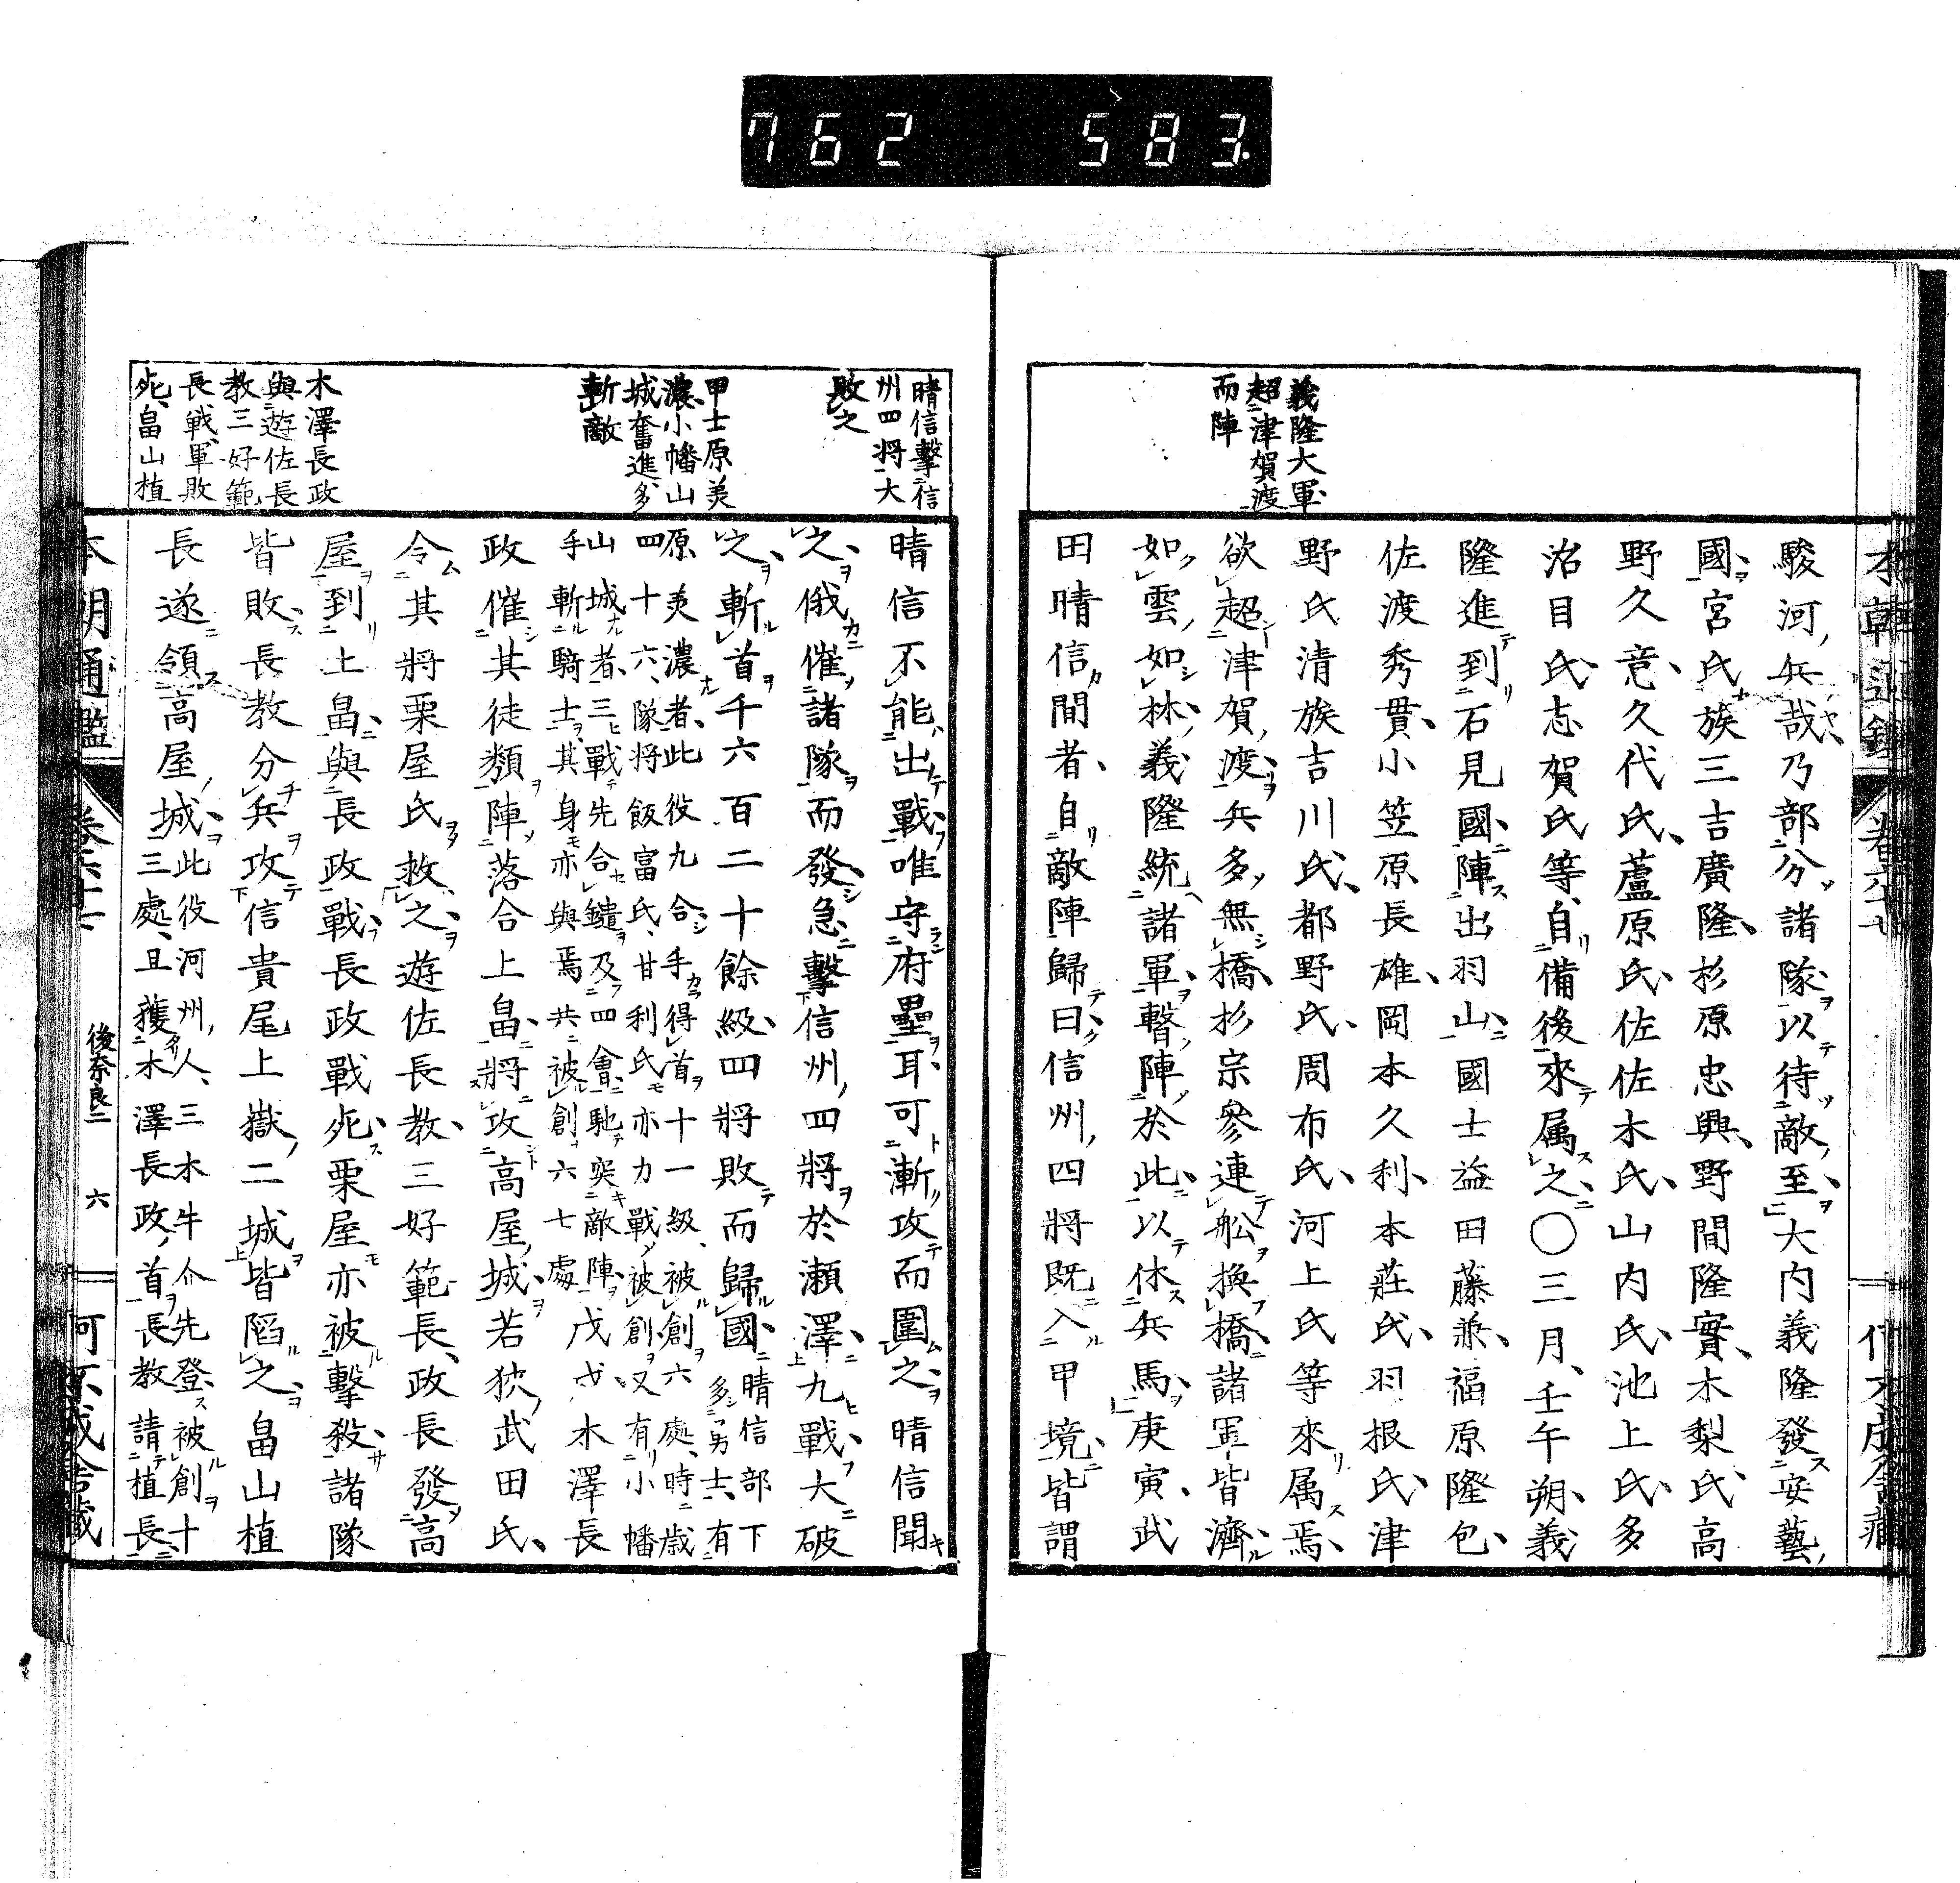 762 583.
義隆大軍
超津賀渡
而陣
駿河兵哉乃部分諸隊以待敵至大內義隆發安藝
國宮氏族三吉廣隆杉原忠興野間隆實木梨氏高
野久意久代氏蘆原氏佐佐木氏山內氏池上氏多
沼目氏志賀氏等自備後來属之〇三月壬午朔義
隆進到石見國陣出羽山國士益田藤兼福原隆包
佐渡秀貫小笠原長雄岡本久利本莊氏羽根氏津
野氏清族吉川氏都野氏周布氏河上氏等來属焉
欲超津賀渡兵多無橋杉宗參連舩換橋諸軍皆濟
如雲如林義隆統諸軍暫陣於此以休兵馬庚寅武
田晴信間者自敵陣歸曰信州四將既入甲境皆謂
晴信擊信
州四將大
敗之
甲士原美
濃小幡山
城奮進多
斬敵
木澤長政
與遊佐長
教三好範
長戰軍敗
死畠山植
晴信不能出戰唯守府壘耳可漸攻而圍之晴信聞
之俄催諸隊而發急擊信州四將於瀬澤九戰大破
之斬首千六百二十餘級四將敗而歸國晴信部下
多勇士有
原美濃者此役九合手得首十一級被創六處時歲
四十六隊將飯富氏甘利氏亦力戰被創又有小幡
山城者三戰先合鑓及四會馳突敵陣
手斬騎士其身亦與焉共被創六七處
戊戌木澤長
政催其徒類陣落合上畠將攻高屋城若狹武田氏
令其將栗屋氏救之遊佐長教三好範長政長發高
屋到上畠與長政戰長政戰死栗屋亦被擊殺諸隊
皆敗長教分兵攻信貴尾上嶽二城皆陷之畠山植
長遂領高屋城
此役河州人三木牛介先登被創十
三處且獲木澤長政首長教請植長
本朝通鑑
卷六十七
後奈良二
六